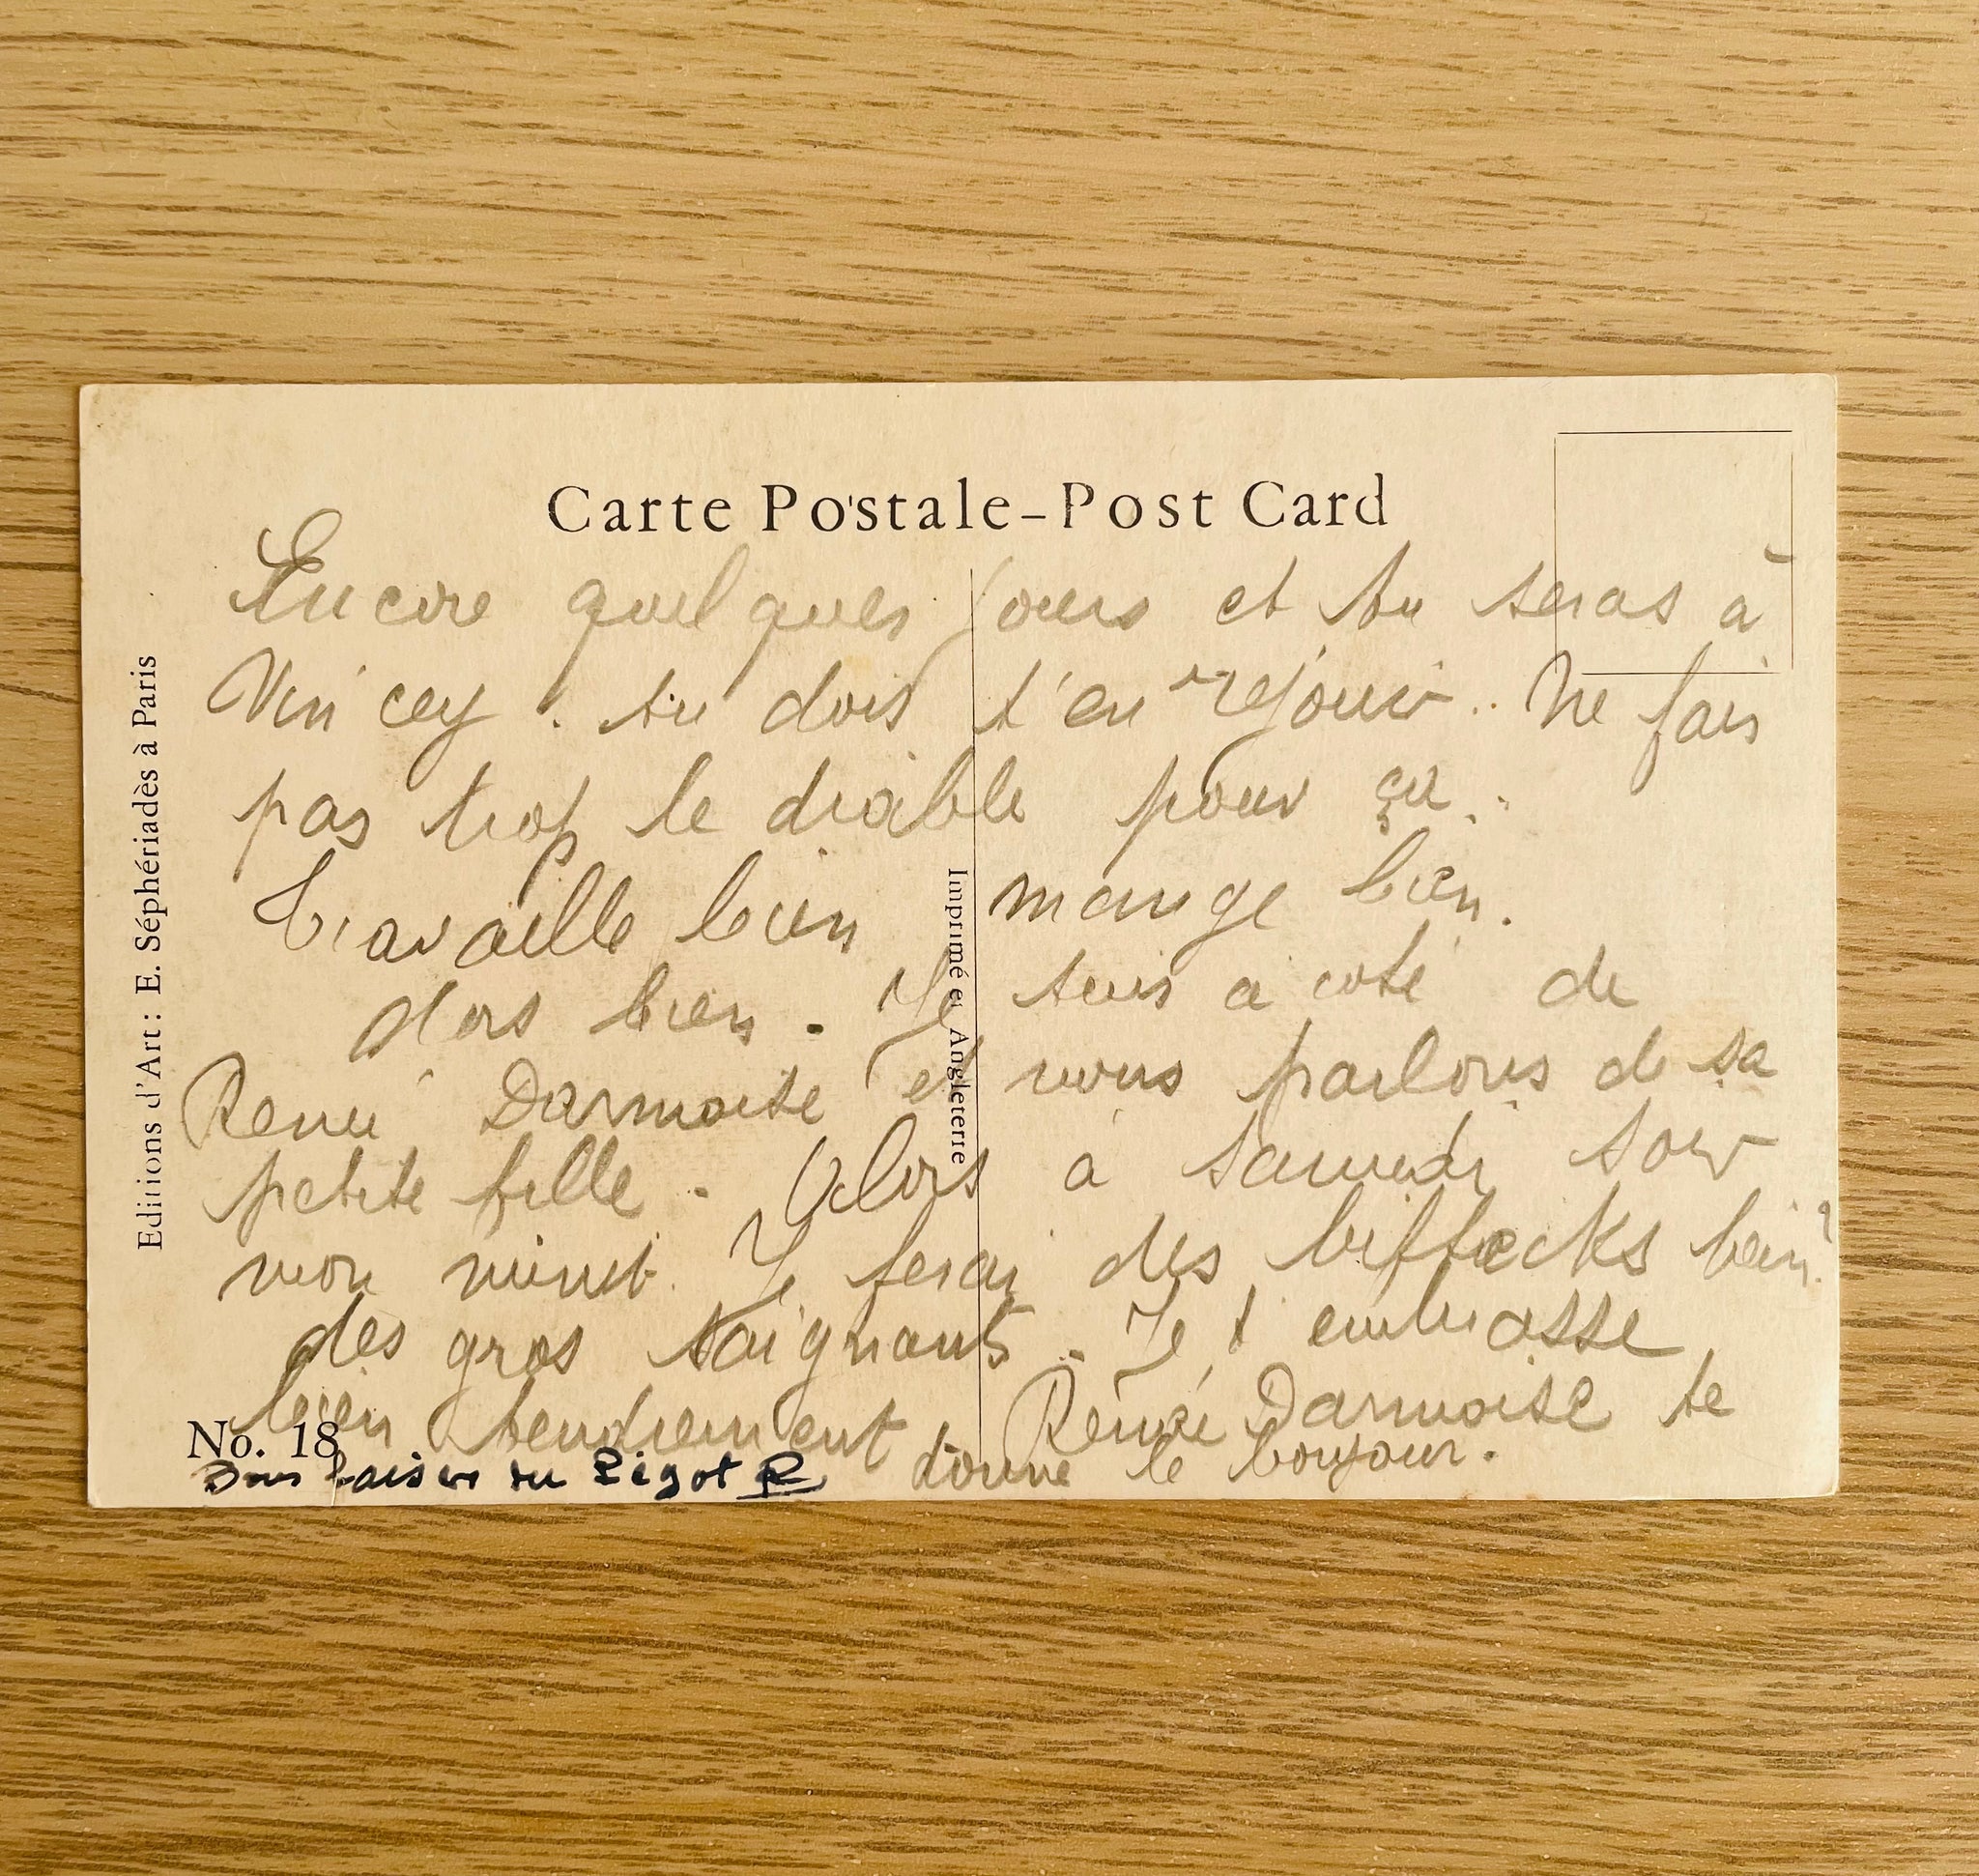 Carte Postale-Post Card
Encore quelques jours et tu seras à
Vincey. tu dois t'en réjouir.. Ne fais
pas trop le diable pour ça.
Travaille bien mange bien.
dors bien. Je suis à coté de
Renée Darmoise et nous parlons de sa
petite fille. Alors à samedi soir
mon minet. Je ferai des biffecks hein?
des gros saignants. Je t'embrasse
bien tendrement Renée Darmoise te
donne le bonjour.
Bons baisers du Pigot R
No. 18
Editions d'Art: E. Séphériadès à Paris
Imprimé en Angleterre